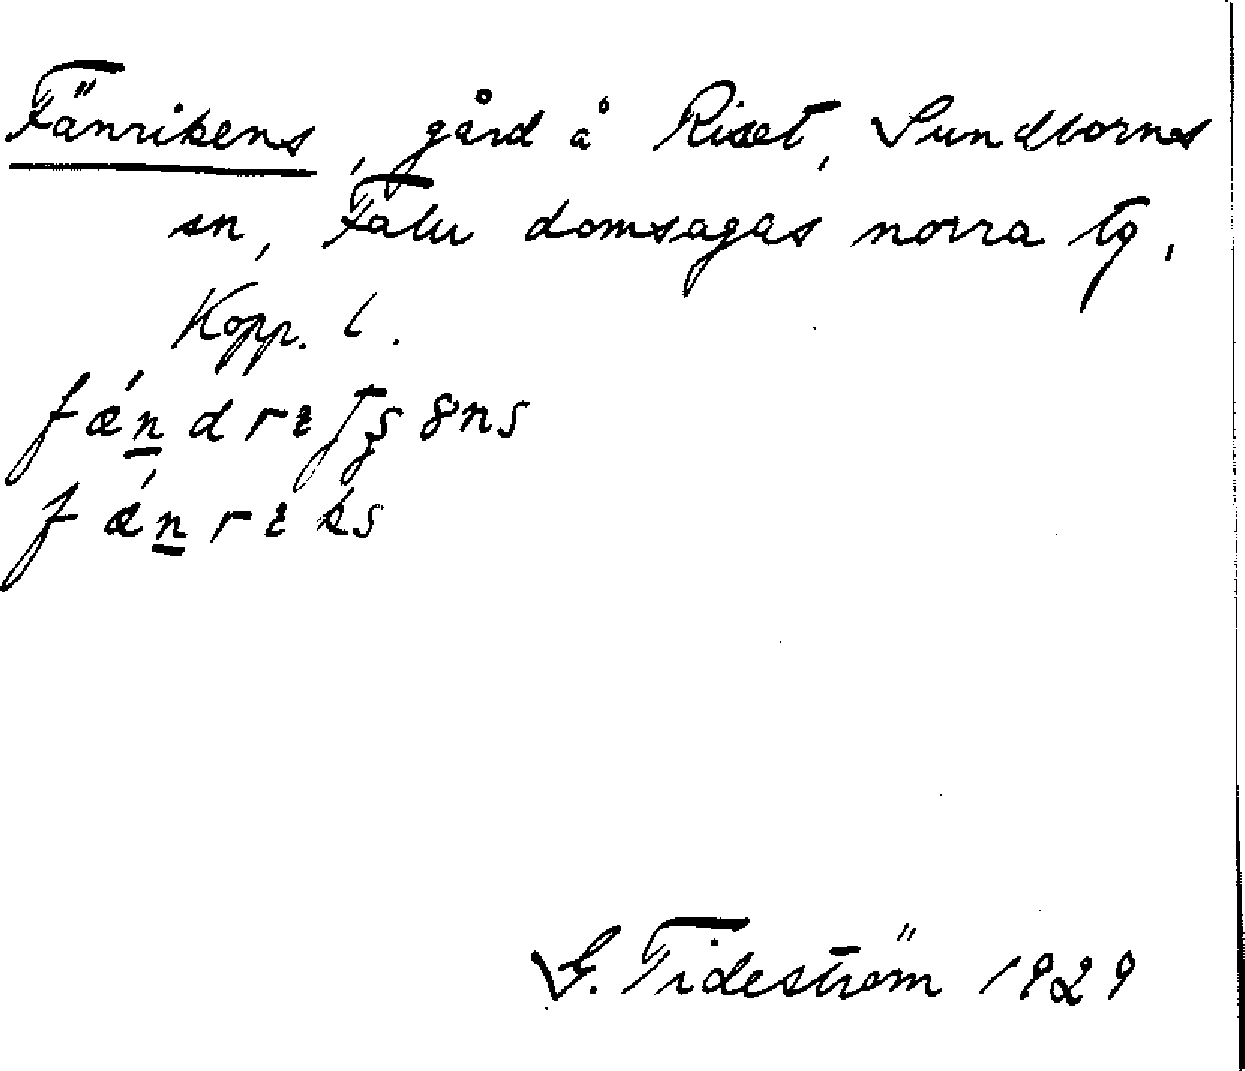 Fänrikens, gård å Riset, Sundborns
sn, Falu domsagas norra tg,
Kopp. l.
G. Tideström 1929